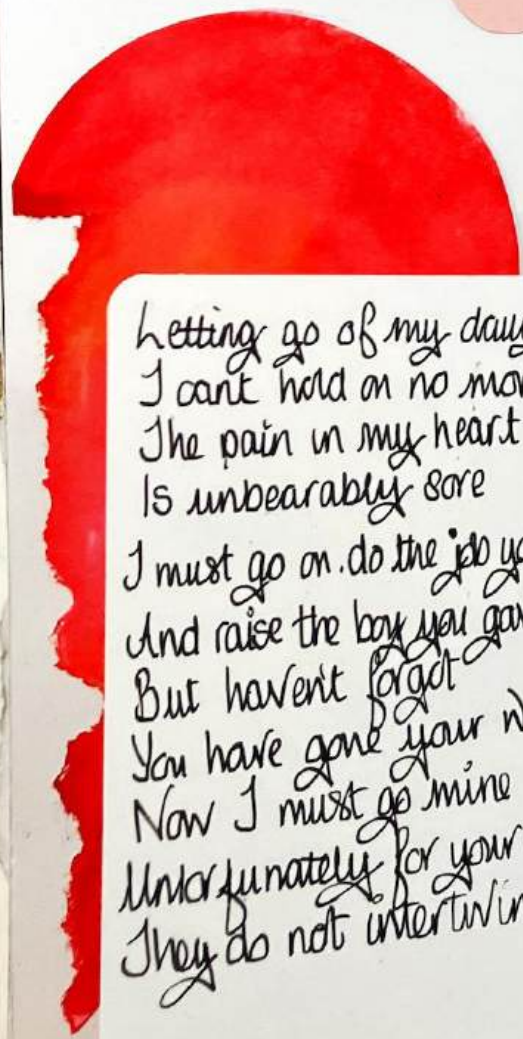 Letting go of my daug
I cant hold on no mor
The pain in my heart
Is unbearably sore
I must go on. do the job yo
And raise the boy you gav
But haven't forgot
You have gone your
Now I must go mine
Unforfunately for your
They do not intertwin